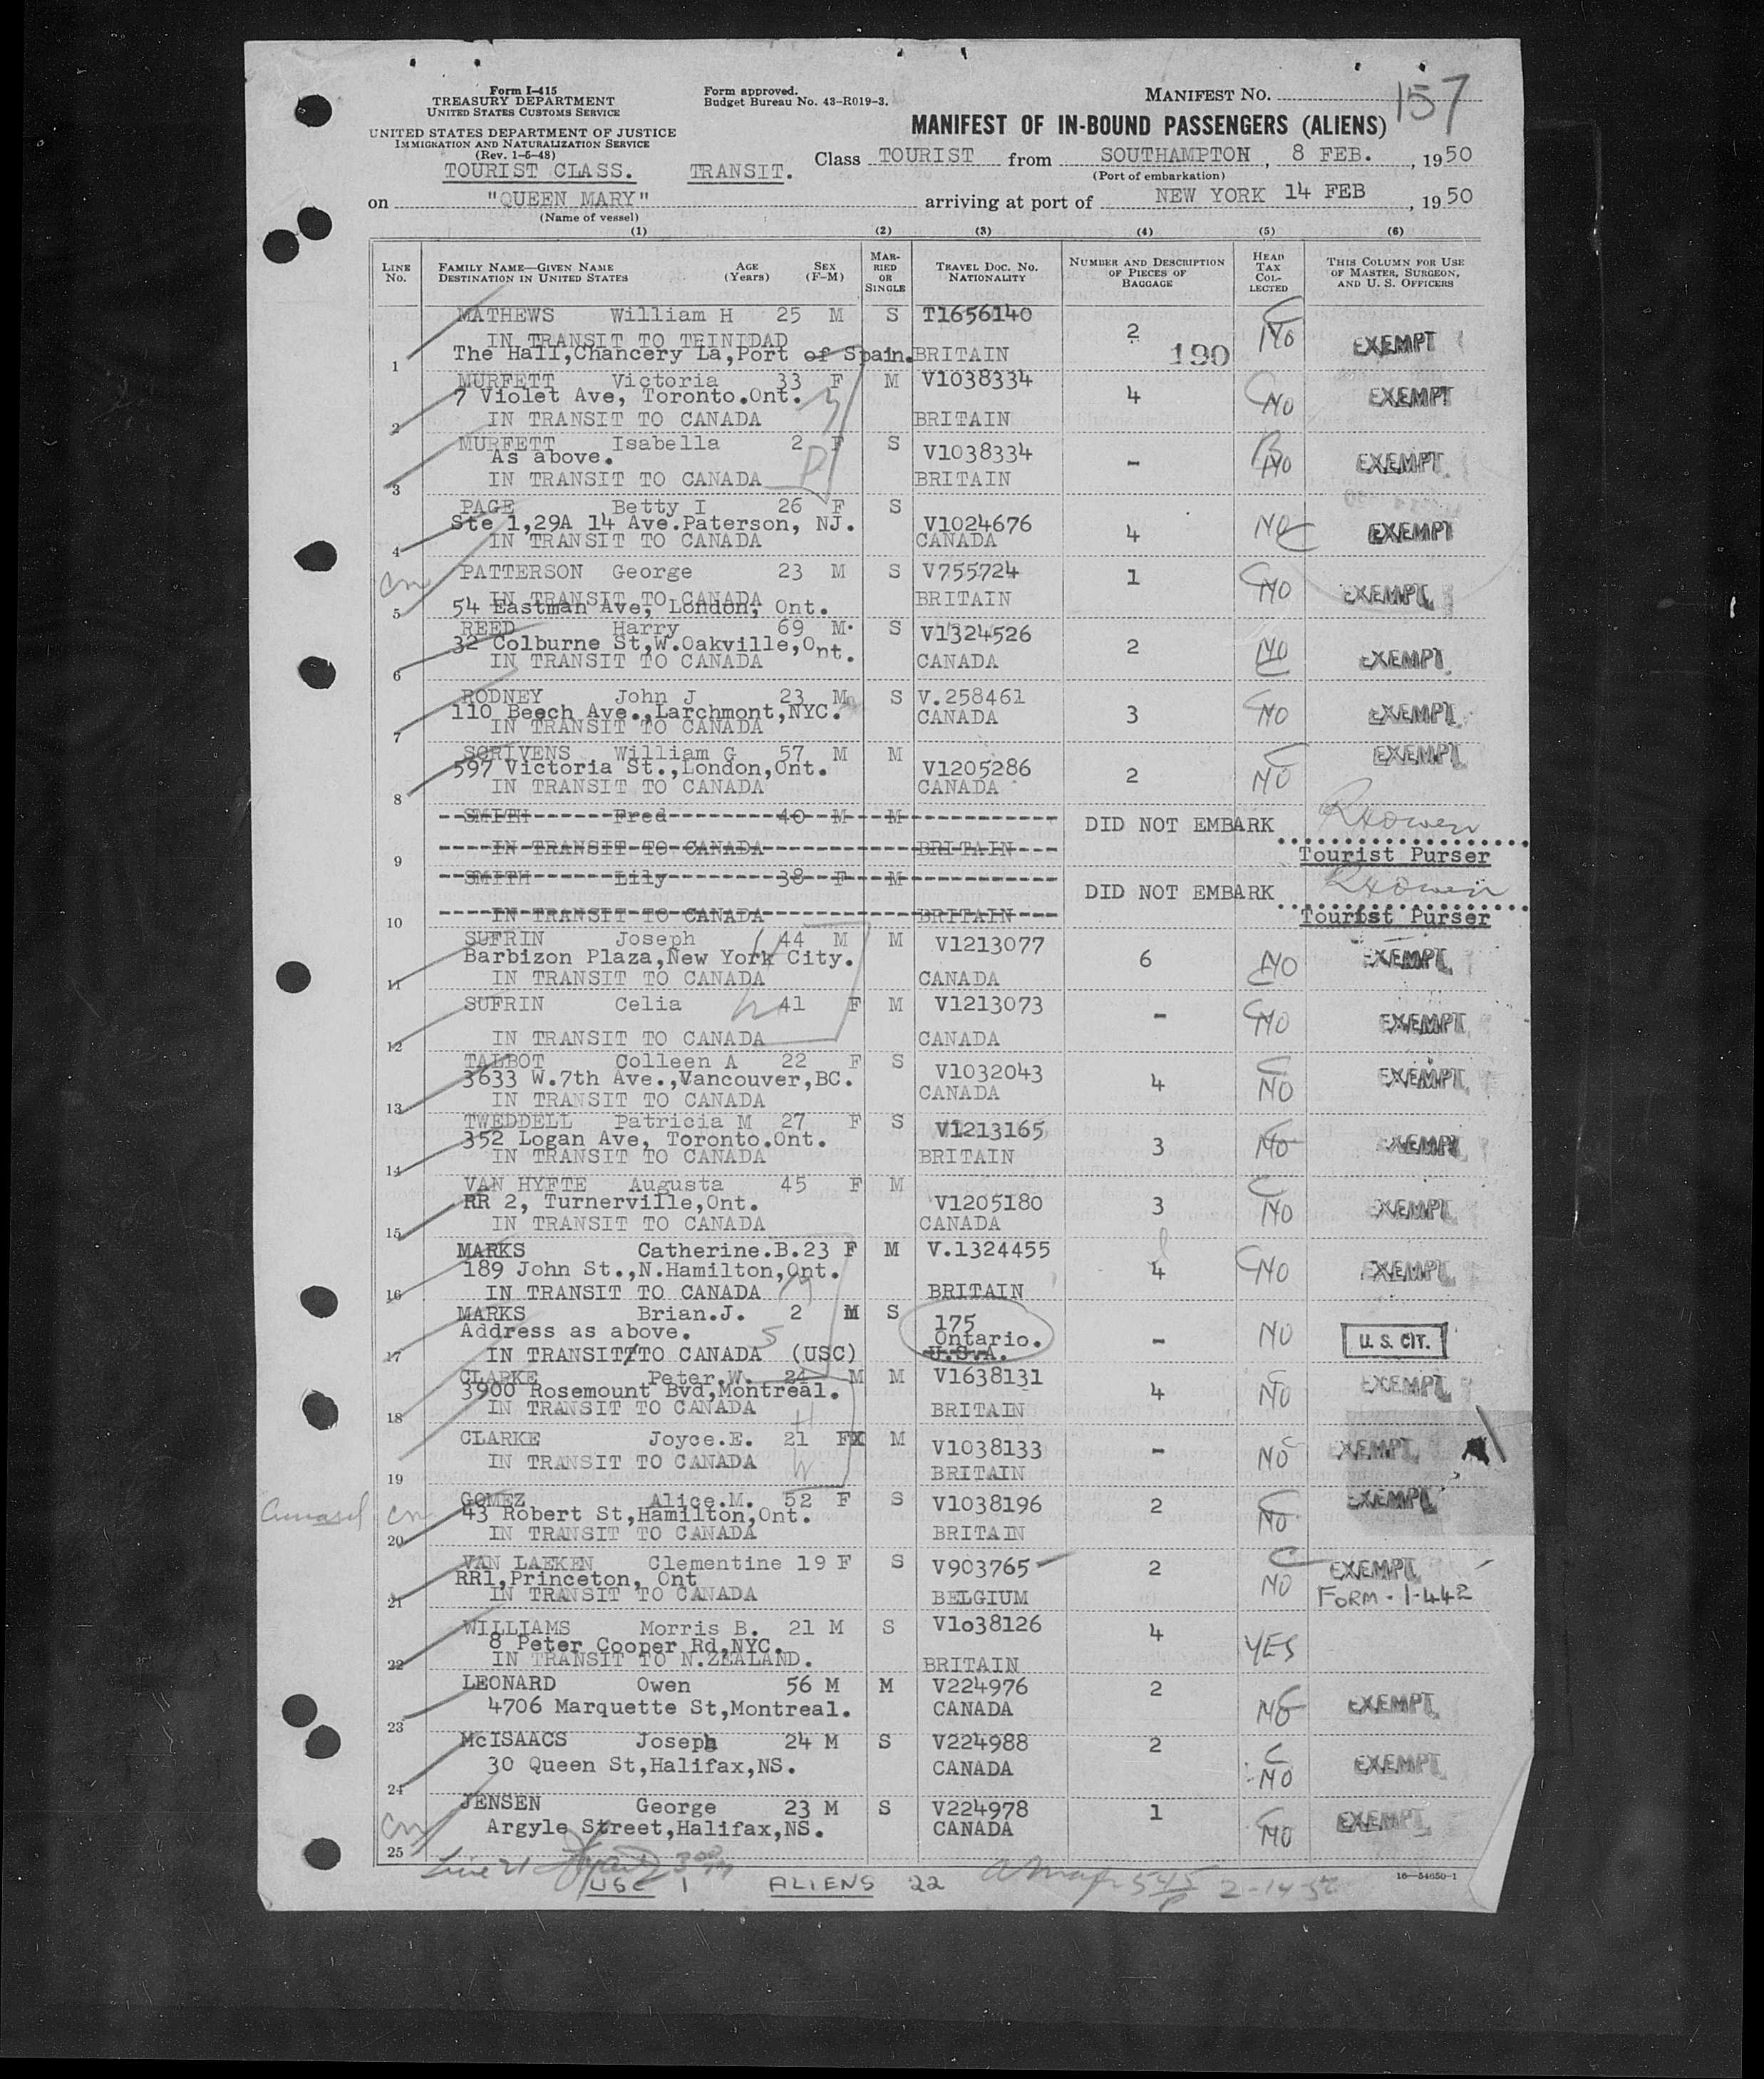 Form I-415
TREASURY DEPARTMENT
UNITED STATES CUSTOMS SERVICE
UNITED STATES DEPARTMENT OF JUSTICE
IMMIGRATION AND NATURALIZATION SERVICE
(Rev. 1-5-48)
Form approved.
Budget Bureau No. 43-R019-3.
MANIFEST NO. 157
MANIFEST OF IN-BOUND PASSENGERS (ALIENS)
TOURIST CLASS. TRANSIT. Class TOURIST from SOUTHAMPTON, 8 FEB., 1950
(Port of embarkation)
on "QUEEN MARY" arriving at port of NEW YORK 14 FEB, 1950
(Name of vessel)
(1) (2) (3) (4) (5) (6)
LINE No. FAMILY NAME—GIVEN NAME DESTINATION IN UNITED STATES AGE (Years) SEX (F-M) MARRIED OR SINGLE TRAVEL DOC. NO. NATIONALITY NUMBER AND DESCRIPTION OF PIECES OF BAGGAGE HEAD TAX COLLECTED THIS COLUMN FOR USE OF MASTER, SURGEON, AND U. S. OFFICERS
MATHEWS William H 25 M S T1656140
IN TRANSIT TO TEINIDAD 2 NO EXEMPT
1 The Hall,Chancery La,Port of Spain. BRITAIN 190
MURFETT Victoria 33 F M V1038334
7 Violet Ave, Toronto.Ont. 4 NO EXEMPT
2 IN TRANSIT TO CANADA BRITAIN
MURFETT Isabella 2 F S V1038334
As above. - NO EXEMPT
3 IN TRANSIT TO CANADA BRITAIN
PAGE Betty I 26 F S
Ste 1,29A 14 Ave.Paterson, NJ. V1024676 NO EXEMPT
4 IN TRANSIT TO CANADA CANADA 4
PATTERSON George 23 M S V755724 1 NO
IN TRANSIT TO CANADA BRITAIN EXEMPT
5 54 Eastman Ave, London, Ont.
REED Harry 69 M. S V1324526
32 Colburne St,W.Oakville,Ont. 2 NO
6 IN TRANSIT TO CANADA CANADA EXEMPT
RODNEY John J 23 M S V.258461
110 Beech Ave.,Larchmont,NYC. CANADA 3 NO EXEMPT
7 IN TRANSIT TO CANADA
SCRIVENS William G 57 M M EXEMPT
597 Victoria St.,London,Ont. V1205286 2 NO
8 IN TRANSIT TO CANADA CANADA
SMITH Fred 40 M M DID NOT EMBARK RHOwen
9 IN TRANSIT TO CANADA BRITAIN Tourist Purser
SMITH Lily 38 F M DID NOT EMBARK RHOwen
10 IN TRANSIT TO CANADA BRITAIN Tourist Purser
SUFRIN Joseph 44 M M V1213077
Barbizon Plaza,New York City. 6 NO EXEMPT
11 IN TRANSIT TO CANADA CANADA
SUFRIN Celia 41 F M V1213073 - NO EXEMPT
12 IN TRANSIT TO CANADA CANADA
TALBOT Colleen A 22 F S V1032043
3633 W.7th Ave.,Vancouver,BC. 4 NO EXEMPT
13 IN TRANSIT TO CANADA CANADA
TWEDDELL Patricia M 27 F S V1213165
352 Logan Ave, Toronto.Ont. 3 NO EXEMPT
14 IN TRANSIT TO CANADA BRITAIN
VAN HYFTE Augusta 45 F M
RR 2, Turnerville,Ont. V1205180 3 NO EXEMPT
15 IN TRANSIT TO CANADA CANADA
MARKS Catherine.B.23 F M V.1324455
189 John St.,N.Hamilton,Ont. 4 NO EXEMPT
16 IN TRANSIT TO CANADA BRITAIN
MARKS Brian.J. 2 M S 175
Address as above. Ontario. - NO U. S. CIT.
17 IN TRANSIT TO CANADA (USC) U.S.A.
CLARKE Peter.W. 24 M M V1638131
3900 Rosemount Bvd,Montreal. 4 NO EXEMPT
18 IN TRANSIT TO CANADA BRITAIN
CLARKE Joyce.E. 21 FX M V1038133 - NO EXEMPT
19 IN TRANSIT TO CANADA BRITAIN
GOMEZ Alice.M. 52 F S V1038196 2 EXEMPT
Cunard cn 43 Robert St,Hamilton,Ont. NO
20 IN TRANSIT TO CANADA BRITAIN
VAN LAEKEN Clementine 19 F S V903765 2 EXEMPT
RR1,Princeton, Ont NO FORM - I-442
21 IN TRANSIT TO CANADA BELGIUM
WILLIAMS Morris B. 21 M S V1o38126 4
8 Peter Cooper Rd,NYC. YES
22 IN TRANSIT TO N.ZEALAND. BRITAIN
LEONARD Owen 56 M M V224976 2
23 4706 Marquette St,Montreal. CANADA NO EXEMPT
McISAACS Joseph 24 M S V224988 2
24 30 Queen St,Halifax,NS. CANADA NO EXEMPT
JENSEN George 23 M S V224978 1
25 Argyle Street,Halifax,NS. CANADA NO EXEMPT
Line 21
USC 1 ALIENS 22 2-14-50
16—54650-1